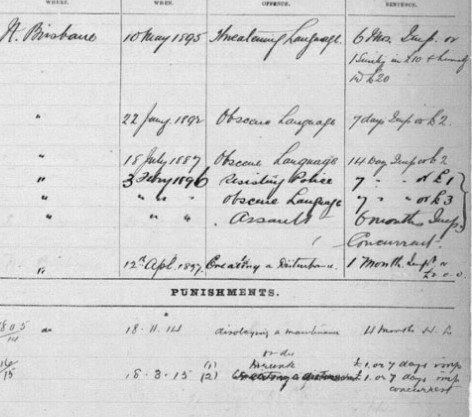 WHERE. WHEN. OFFENCE. SENTENCE.
N. Brisbane 10 May 1895 Threatening Language 6 Mos. Imp. or
1 Surety in £20 & himself
in £20
" 22 Jany. 1892 Obscene Language 7 days Imp or £2.
" 18 July 1887 Obscene Language 14 Day Imp or £2
" 3 Febry 1896 Resisting Police 7 " " or £1
" " " " Obscene Language 7 " " or £3
" " " Assault 6 months Imp.
Concurrent.
" 12th Apl. 1897 Creating a Disturbance. 1 Month Imp. or
£2.0.0.
PUNISHMENTS.
18.11.14 4 months H.L.
or du
15 18.3.15 (1) Drunk £1. or 7 days imp
(2) £1. or 7 days imp
concurrent